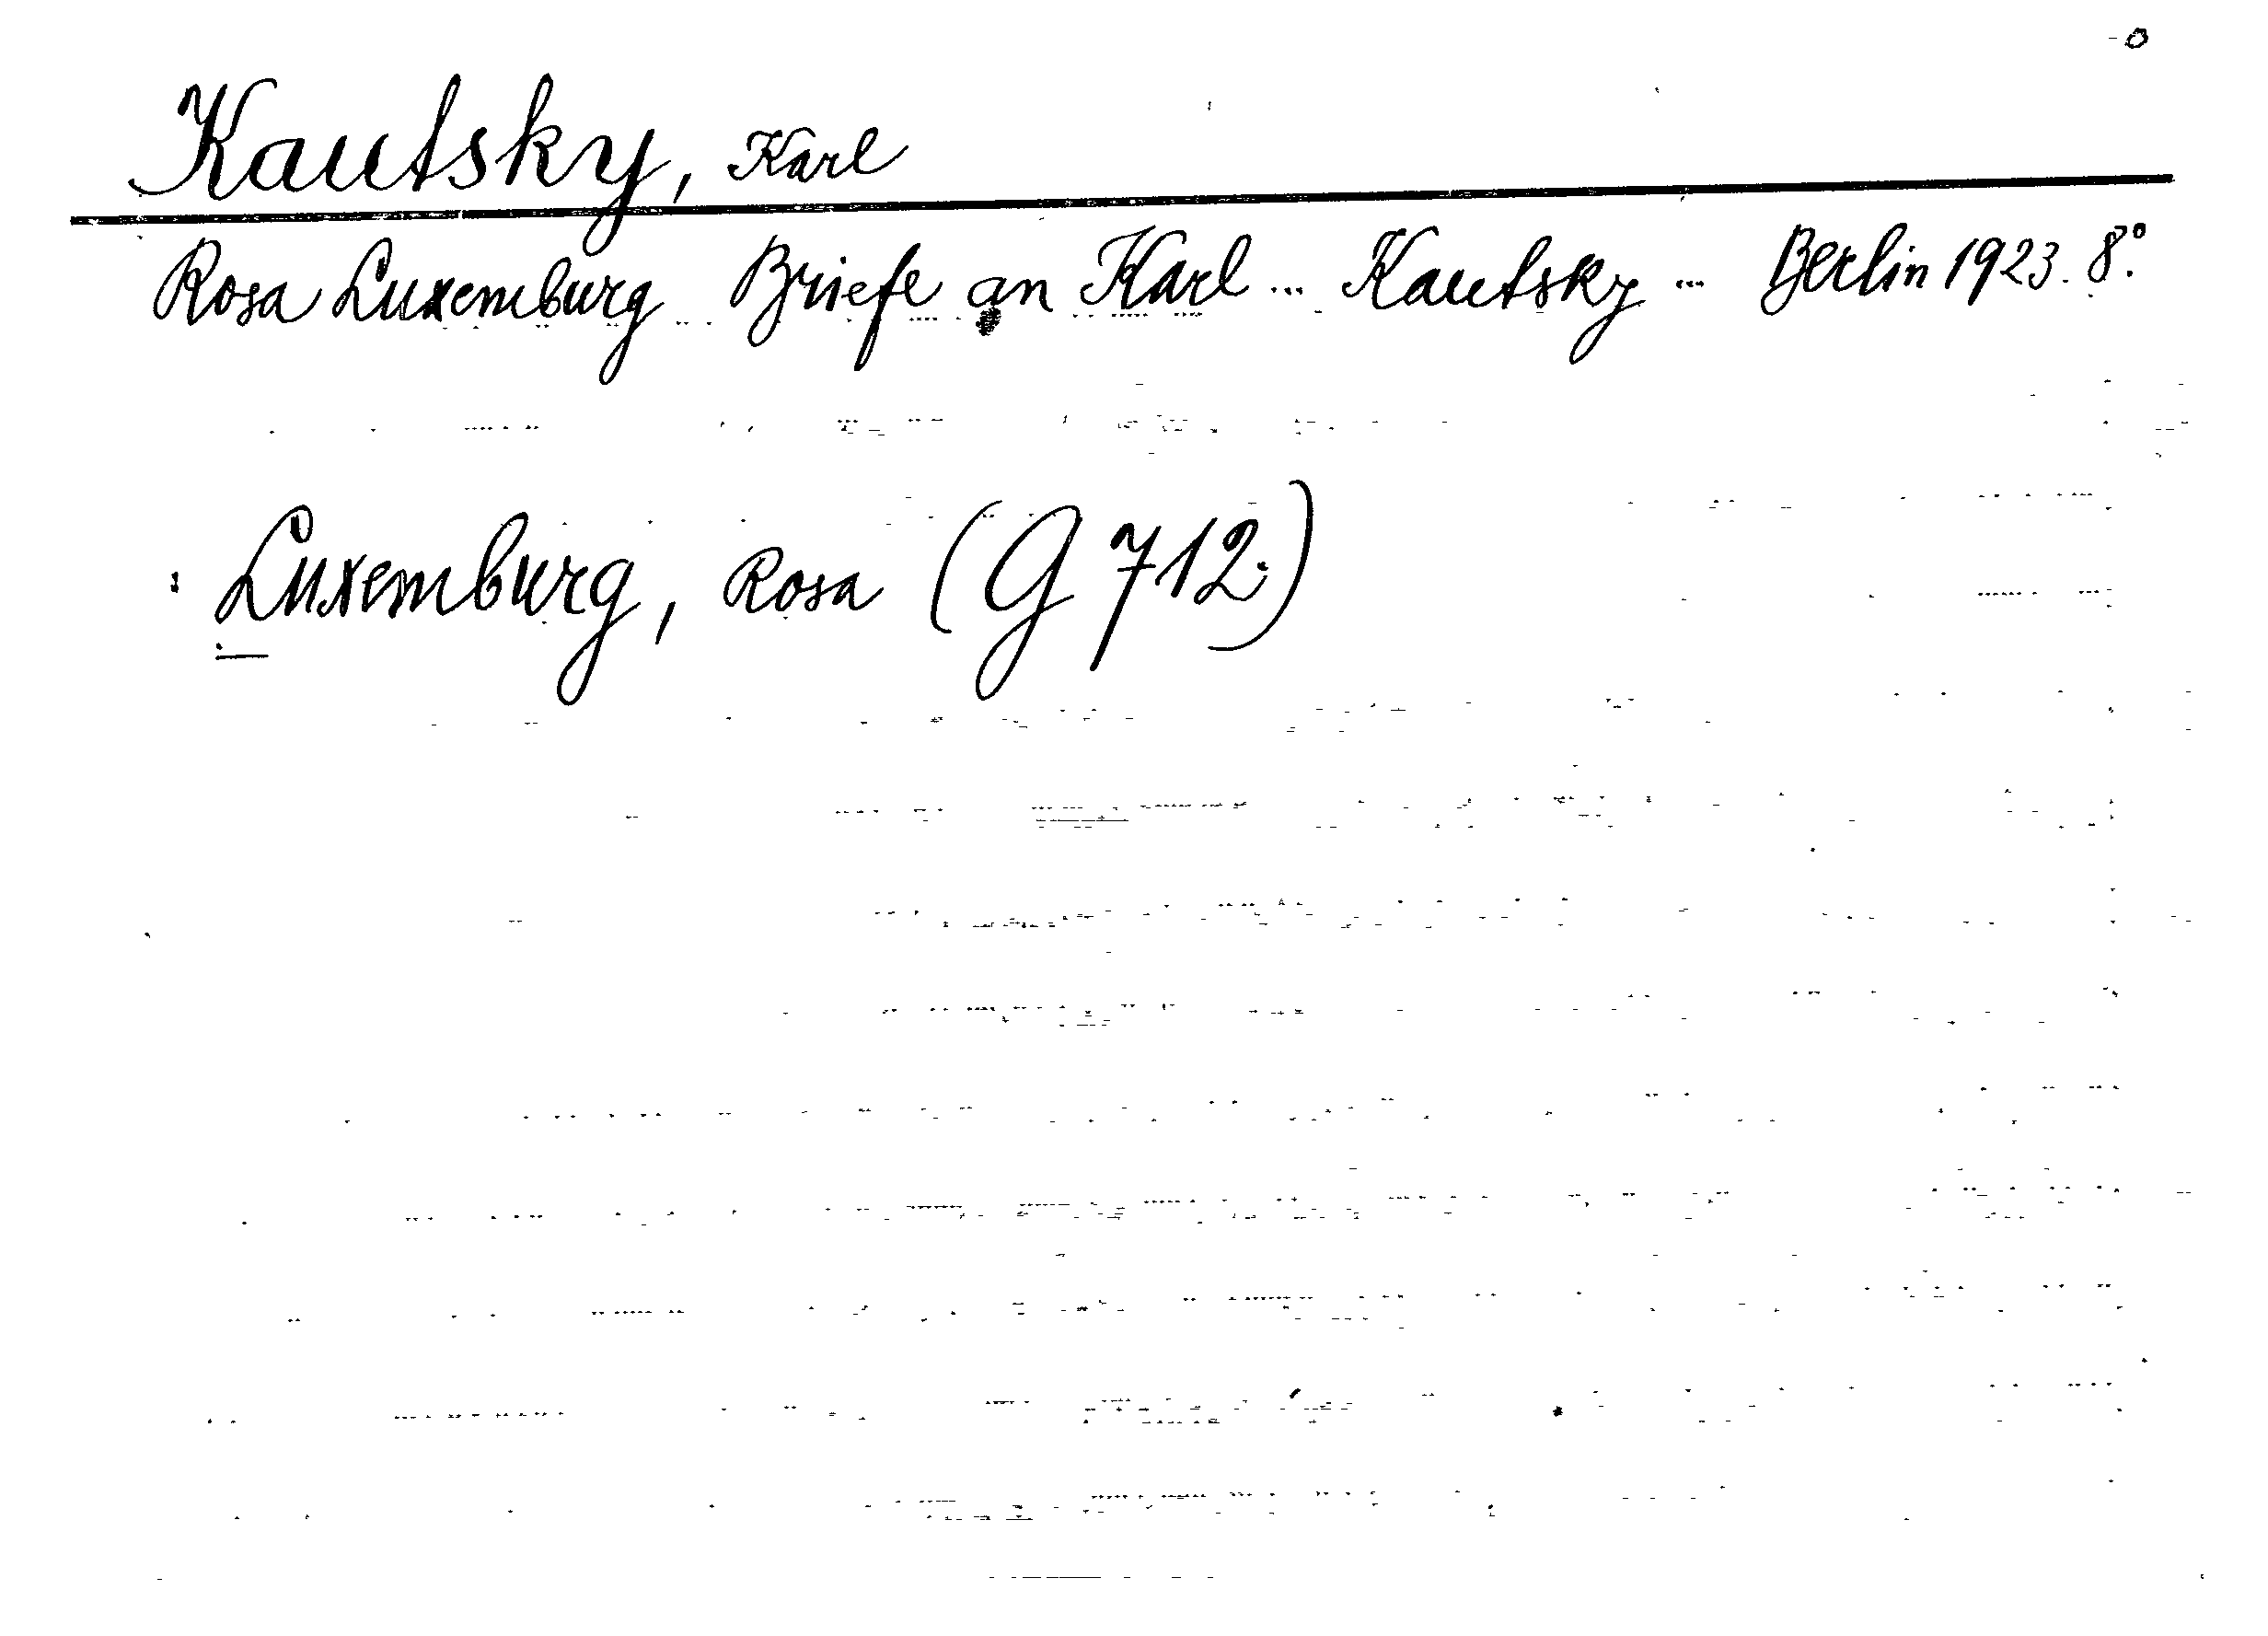 Kautsky, Karl
Rosa Luxemburg Briefe an Karl ... Kautsky ... Berlin 1923. 8°.
: Luxemburg, Rosa (G 712.)